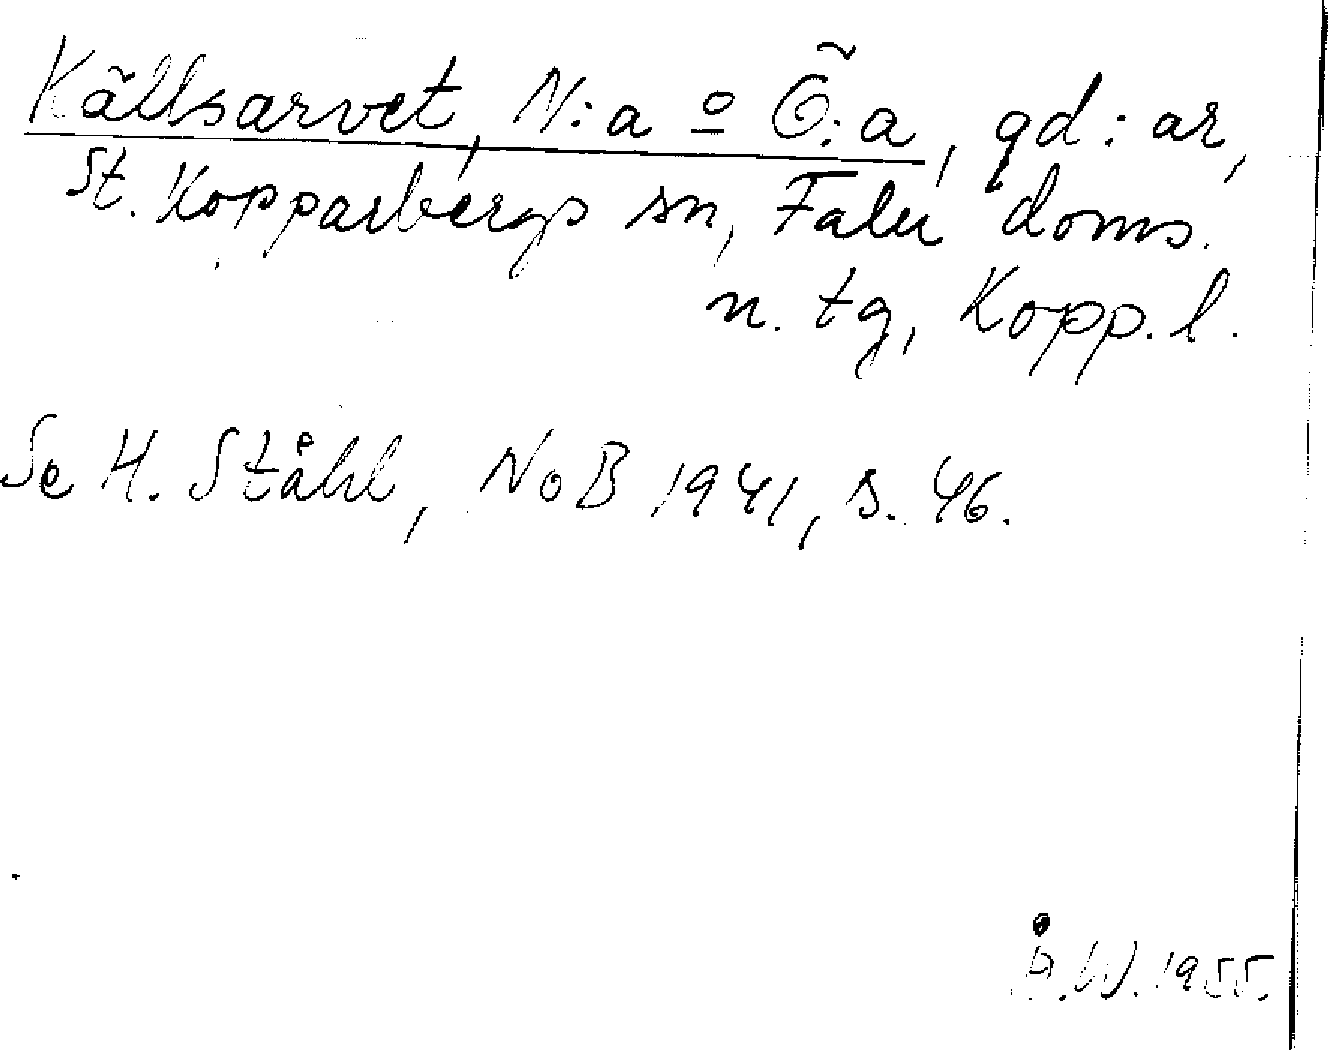 Källsarvet, N:a o Ö:a, gd:ar,
St. Kopparbergs sn, Falu doms.
n. tg, Kopp. l.
Se H. Ståhl, NoB 1941, s. 46.
Å.W. 1955.